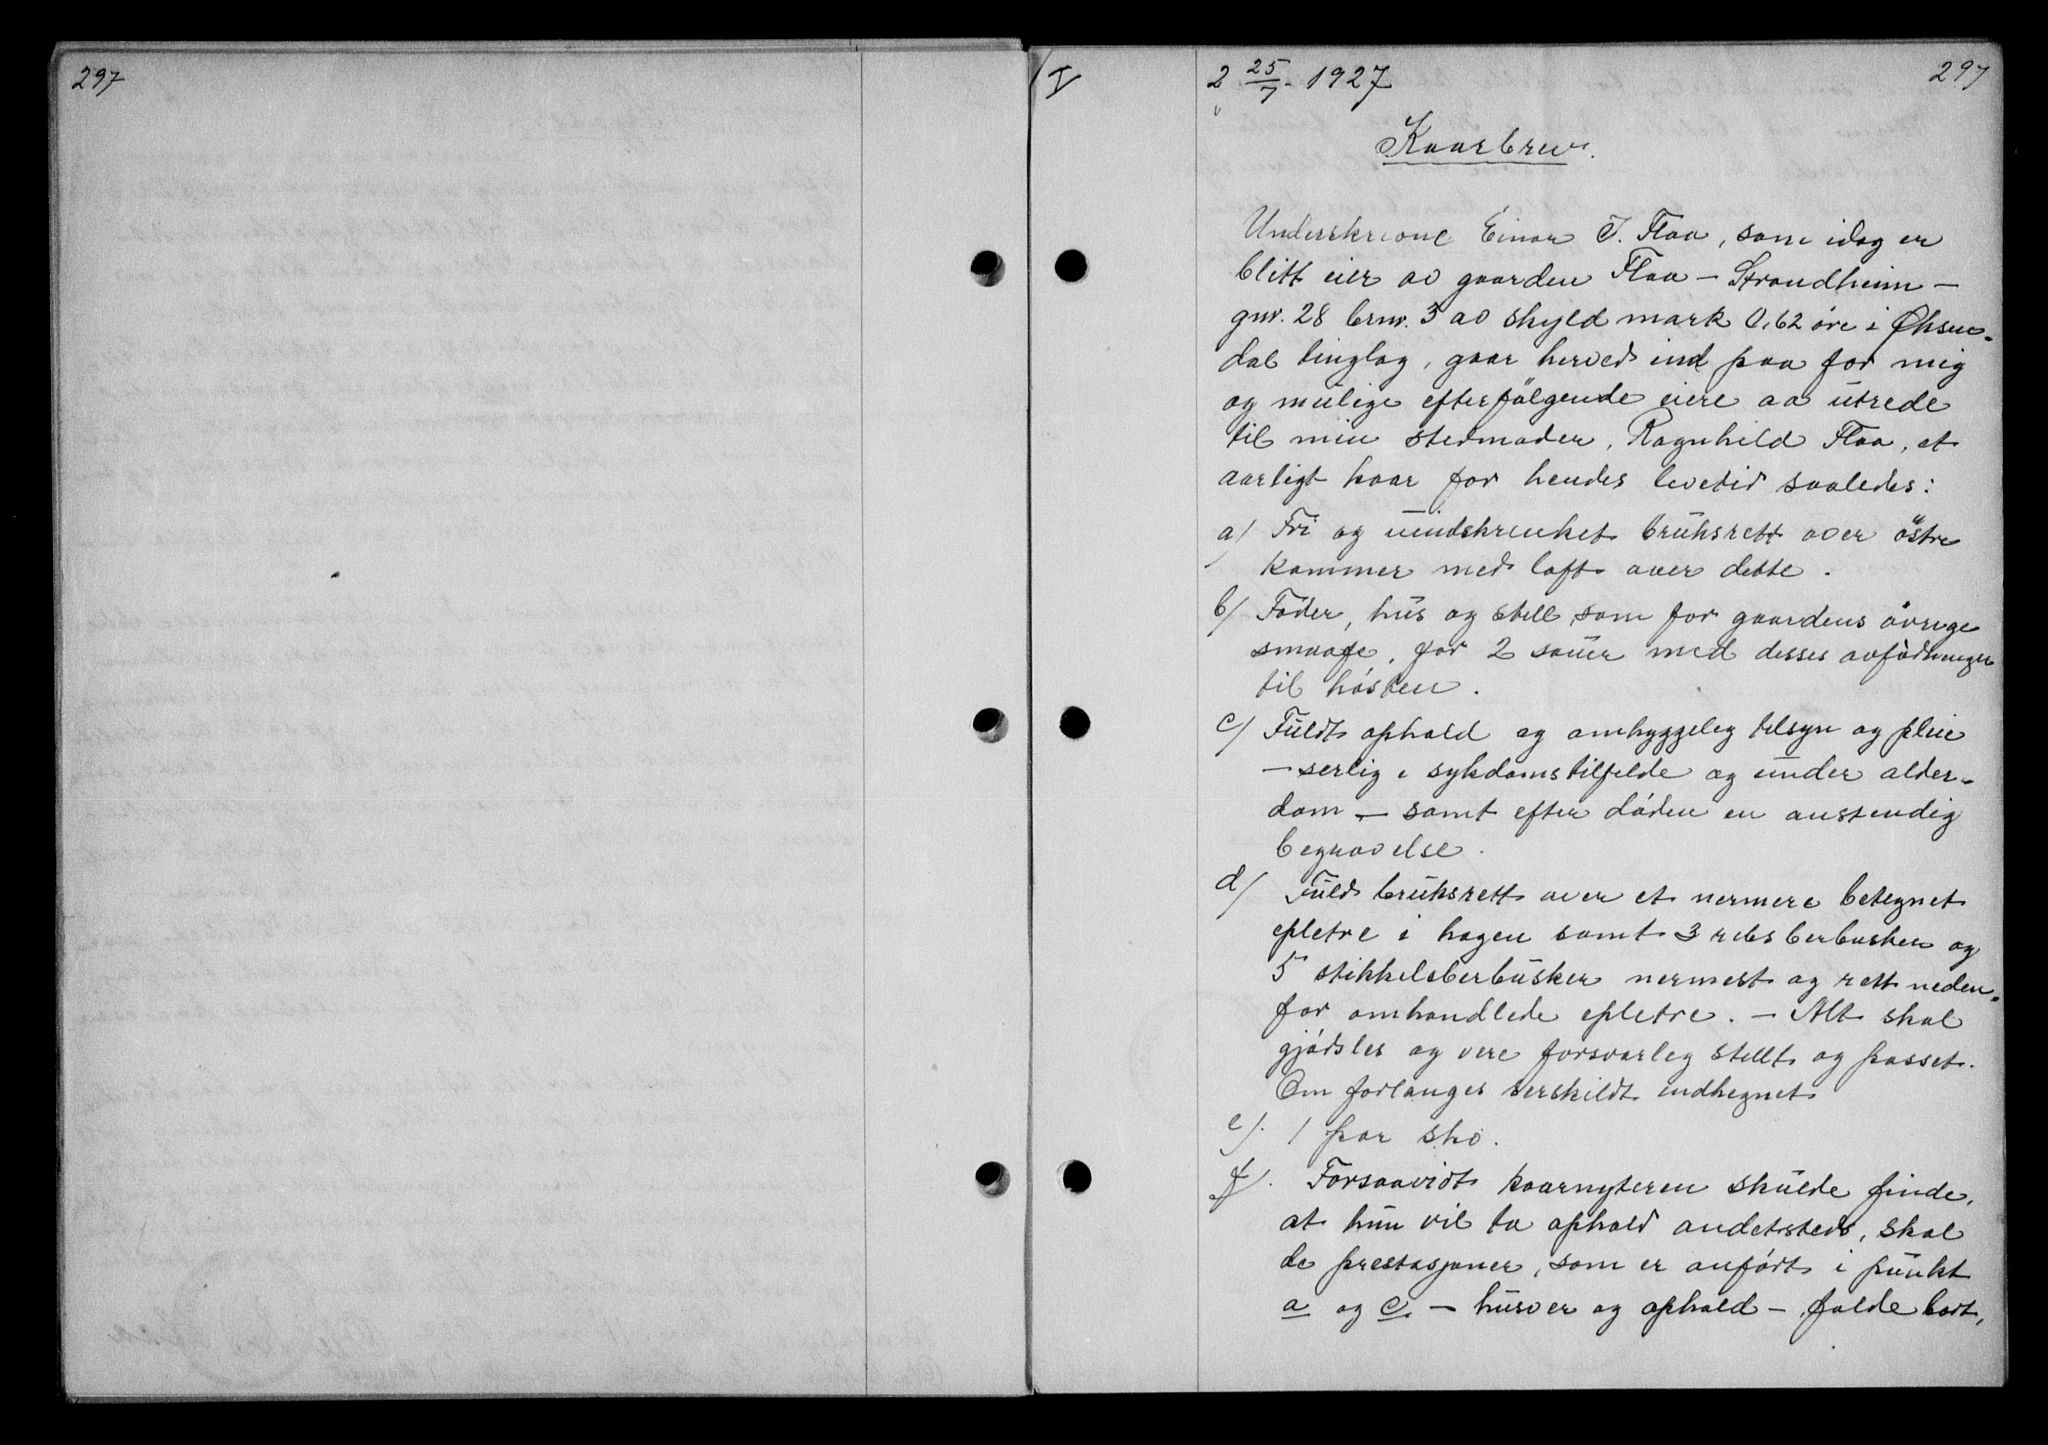 297
I
2 25/7 - 1927
297
Kaarbrev.
Underskrevne Einar I. Flaa, som idag er
blitt eier av gaarden Flaa - Strandheim -
gnr. 28 brnr. 3 av skyld mark 0,62 öre i Öksen-
dal tinglag, gaar herved ind paa for mig
og mulige efterfölgende eiere aa utrede
til min stedmoder, Ragnhild Flaa, et
aarligt kaar for hendes levetid saaledes:
a/ Fri og uindskrenket bruksrett over östre
kammer med loft over dette.
b/ Föder, hus og stell som for gaardens övrige
smaafe, for 2 sauer med desses avfödninger
til hösten.
c/ Fuldt ophold og omhyggelig tilsyn og pleie
- serlig i sykdomstilfelde og under alder-
dom - samt efter döden en anstendig
begravelse.
d/ Fuld bruksrett over et nermere betegnet
epletre i hagen samt 3 ribsberbusker og
5 stikkelsberbusker nermest og rett neden-
for omhandlede epletre. - Alt skal
gjödsles og vere forsvarleg stellt og passet.
Om forlanges serskildt indhegnet
e/. 1 par sko.
f/. Forsaavidt kaarnyteren skulde finde,
at hun vil ta ophold andetsteds, skal
de prestasjoner, som er anfört i punkt
a og c. - husver og ophold - falde bort,